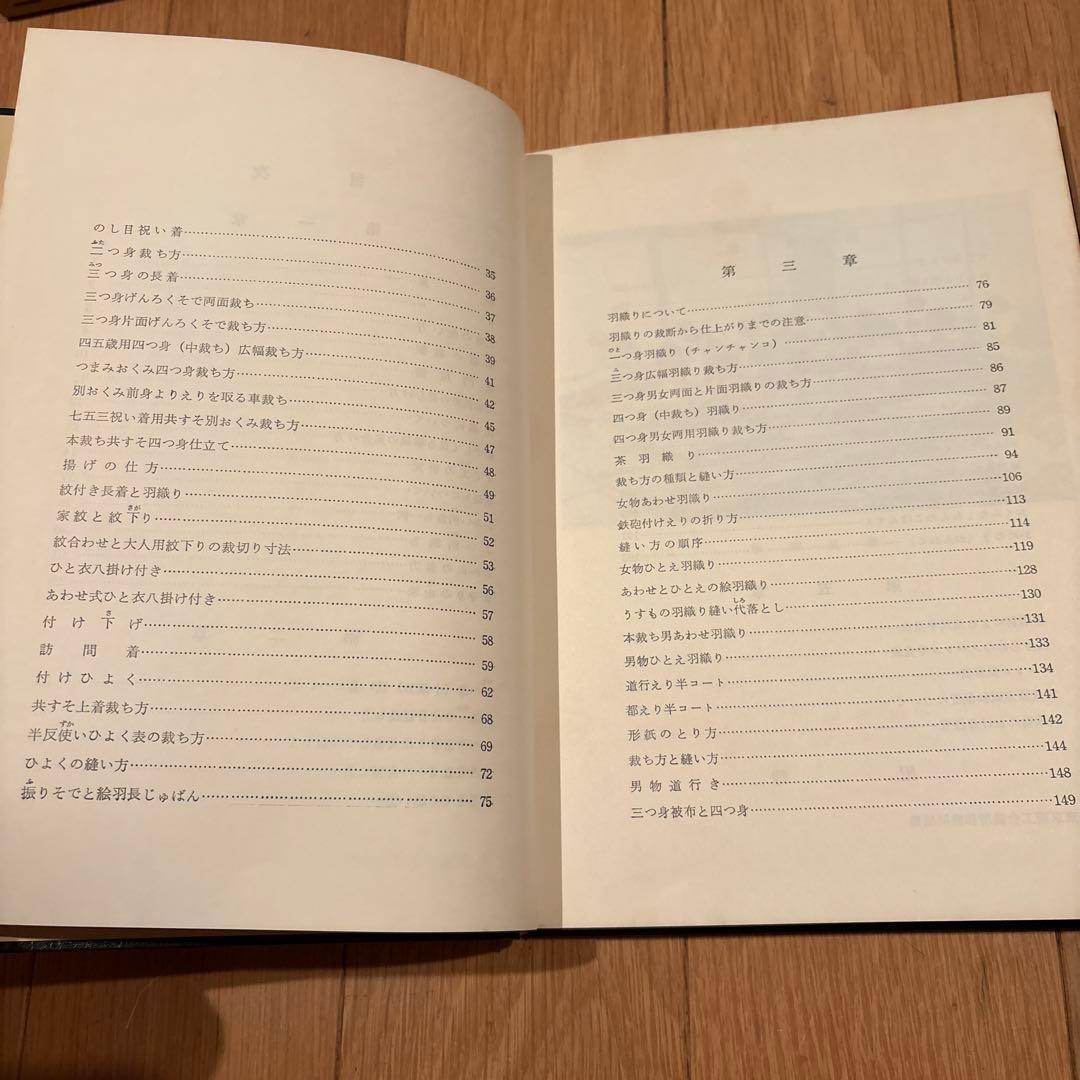 のし目祝い着……35
二つ身裁ち方……36
三つ身の長着……37
三つ身げんろくそで両面裁ち……38
三つ身片面げんろくそで裁ち方……39
四五歳用四つ身（中裁ち）広幅裁ち方……41
つまみおくみ四つ身裁ち方……42
別おくみ前身よりえりを取る車裁ち……45
七五三祝い着用共すそ別おくみ裁ち方……47
本裁ち共すそ四つ身仕立て……48
揚げの仕方……49
紋付き長着と羽織り……51
家紋と紋下り……52
紋合わせと大人用紋下りの裁切り寸法……53
ひと衣八掛け付き……56
あわせ式ひと衣八掛け付き……57
付け下げ……58
訪問着……59
付けひよく……62
共すそ上着裁ち方……68
半反使いひよく表の裁ち方……69
ひよくの縫い方……72
振りそでと絵羽長じゅばん……75
第三章
羽織りについて……76
羽織りの裁断から仕上がりまでの注意……79
一つ身羽織り（チャンチャンコ）……81
三つ身広幅羽織り裁ち方……85
三つ身男女両面と片面羽織りの裁ち方……86
四つ身（中裁ち）羽織り……87
四つ身男女両用羽織り裁ち方……89
茶羽織り……91
裁ち方の種類と縫い方……94
女物あわせ羽織り……106
鉄砲付けえりの折り方……113
縫い方の順序……114
女物ひとえ羽織り……119
あわせとひとえの絵羽織り……128
うすもの羽織り縫い代落とし……130
本裁ち男あわせ羽織り……131
男物ひとえ羽織り……133
道行えり半コート……134
都えり半コート……141
形紙のとり方……142
裁ち方と縫い方……144
男物道行き……148
三つ身被布と四つ身……149